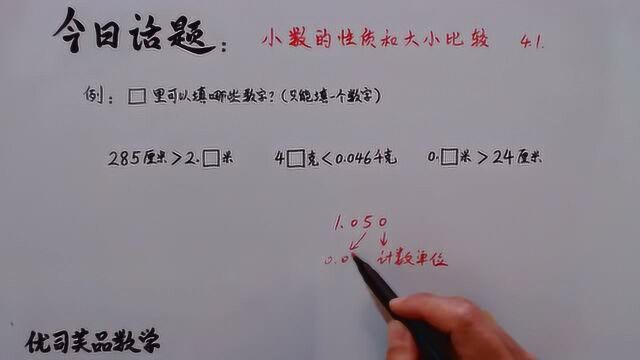 今日话题： 小数的性质和大小比较 4.1.
例：□里可以填哪些数字?(只能填一个数字)
285厘米>2.□米 4□克<0.046千克 0.□米>24厘米
1.050
0.0 计数单位
优司芙品数学